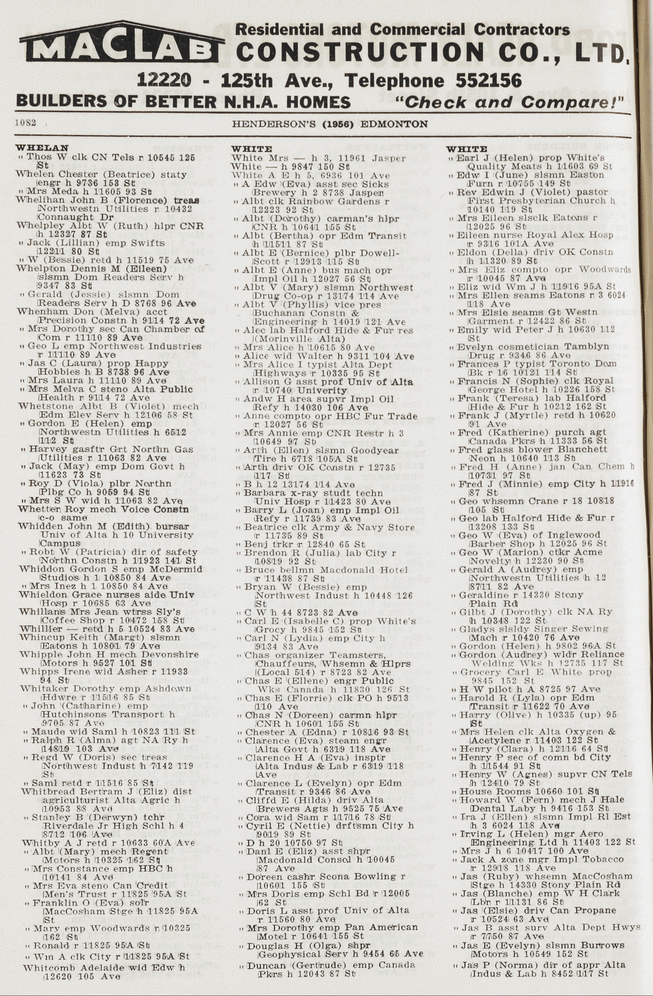 MACLAB
Residential and Commercial Contractors
CONSTRUCTION CO., LTD.
12220 - 125th Ave., Telephone 552156
BUILDERS OF BETTER N.H.A. HOMES "Check and Compare!"
1082
HENDERSON'S (1956) EDMONTON
WHELAN
" Thos W clk CN Tels r 10545 125
St
Whelen Chester (Beatrice) staty
engr h 9736 153 St
" Mrs Meda h 11605 93 St
Whelihan John B (Florence) treas
Northwestn Utilities r 10432
Connaught Dr
Whelpley Albt W (Ruth) hlpr CNR
h 12327 87 St
" Jack (Lillian) emp Swifts
12211 80 St
" W (Bessie) retd h 11519 75 Ave
Whelpton Dennis M (Eileen)
slsmn Dom Readers Serv h
9347 83 St
" Gerald (Jessie) slsmn Dom
Readers Serv h D 8763 96 Ave
Whenham Don (Melva) acct
Precision Constn h 9114 72 Ave
" Mrs Dorothy sec Can Chamber of
Com r 11110 89 Ave
" Geo L emp Northwest Industries
r 11110 89 Ave
" Jas C (Laura) prop Happy
Hobbies h B 8738 96 Ave
" Mrs Laura h 11110 89 Ave
" Mrs Melva C steno Alta Public
Health r 9114 72 Ave
Whetstone Albt B (Violet) mech
Edm Elev Serv h 12106 58 St
" Gordon E (Helen) emp
Northwestn Utilities h 6512
112 St
" Harvey gasftr Grt Northn Gas
Utilities r 11063 82 Ave
" Jack (May) emp Dom Govt h
11623 73 St
" Roy D (Viola) plbr Northn
Plbg Co h 9059 94 St
" Mrs S W wid h 11063 82 Ave
Whetter Roy mech Voice Constn
c-o same
Whidden John M (Edith) bursar
Univ of Alta h 10 University
Campus
" Robt W (Patricia) dir of safety
Northn Constn h 11923 141 St
Whiddon Gordon S emp McDermid
Studios h 1 10850 84 Ave
" Mrs Inez h 1 10850 84 Ave
Whieldon Grace nurses aide Univ
Hosp r 10685 63 Ave
Whillans Mrs Jean wtrss Sly's
Coffee Shop r 10472 158 St
Whillier — retd h 5 10524 83 Ave
Whincup Keith (Margt) slsmn
Eatons h 10801 79 Ave
Whipple John H mech Devonshire
Motors h 9527 101 St
Whipps Irene wid Asher r 11933
94 St
Whitaker Dorothy emp Ashdown
Hdwre r 11516 85 St
" John (Catharine) emp
Hutchinsons Transport h
9705 87 Ave
" Maude wid Saml h 10823 111 St
" Ralph E (Alma) agt NA Ry h
14819 103 Ave
" Regd W (Doris) sec treas
Northwest Indust h 7142 119
St
" Saml retd r 11516 85 St
Whitbread Bertram J (Eliz) dist
agriculturist Alta Agric h
10953 88 Ave
" Stanley B (Derwyn) tchr
Riverdale Jr High Schl h 4
8712 106 Ave
Whitby A J retd r 10633 60A Ave
" Albt (Mary) mech Regent
Motors h 10325 162 St
" Mrs Constance emp HBC h
10141 84 Ave
" Mrs Eva steno Can Credit
Men's Trust r 11825 95A St
" Franklin O (Eva) solr
MacCosham Stge h 11825 95A
St
" Mary emp Woodwards r 10325
162 St
" Ronald r 11825 95A St
" Wm A clk City r 11825 95A St
Whitcomb Adelaide wid Edw h
12620 105 Ave
WHITE
White Mrs — h 3, 11961 Jasper
White — h 9847 150 St
White A E h 5, 6936 101 Ave
" A Edw (Eva) asst sec Sicks
Brewery h 2 8738 Jasper
" Albt clk Rainbow Gardens r
12223 92 St
" Albt (Dorothy) carman's hlpr
CNR h 10641 155 St
" Albt (Bertha) opr Edm Transit
h 11511 87 St
" Albt E (Bernice) plbr Dowell-
Scott r 12913 115 St
" Albt E (Anne) bus mach opr
Impl Oil h 12027 56 St
" Albt V (Mary) slsmn Northwest
Drug Co-op r 12174 114 Ave
" Albt V (Phyllis) vice pres
Buchanan Constn &
Engineering h 14019 121 Ave
" Alec lab Halford Hide & Fur res
(Morinville Alta)
" Mrs Alice h 10615 80 Ave
" Alice wid Walter h 9311 104 Ave
" Mrs Alice I typist Alta Dept
Highways r 10335 95 St
" Allison G asst prof Univ of Alta
r 10740 Univerity
" Andw H area supvr Impl Oil
Refy h 14030 106 Ave
" Anne compto opr HBC Fur Trade
r 12027 56 St
" Mrs Annie emp CNR Restr h 3
10649 97 St
" Arth (Ellen) slsmn Goodyear
Tire h 6718 105A St
" Arth driv OK Constn r 12735
117 St
" B h 12 13174 114 Ave
" Barbara x-ray studt techn
Univ Hosp r 11423 80 Ave
" Barry L (Joan) emp Impl Oil
Refy r 11739 83 Ave
" Beatrice clk Army & Navy Store
r 11735 89 St
" Benj trkr r 12840 65 St
" Brendon R (Julia) lab City r
10819 92 St
" Bruce bellmn Macdonald Hotel
r 11438 87 St
" Bryan W (Bessie) emp
Northwest Indust h 10448 126
St
" C W h 44 8723 82 Ave
" Carl E (Isabelle C) prop White's
Grocy h 9845 152 St
" Carl N (Lydia) emp City h
9134 83 Ave
" Chas organizer Teamsters,
Chauffeurs, Whsemn & Hlprs
(Local 514) r 8723 82 Ave
" Chas E (Eilene) engr Public
Wks Canada h 11830 126 St
" Chas E (Florrie) clk PO h 9513
110 Ave
" Chas N (Doreen) carmn hlpr
CNR h 10601 155 St
" Chester A (Edna) r 10816 93 St
" Clarence (Eva) steam engr
Alta Govt h 6319 118 Ave
" Clarence H A (Eva) insptr
Alta Indus & Lab r 6319 118
Ave
" Clarence L (Evelyn) opr Edm
Transit r 9346 86 Ave
" Cliffd E (Hilda) driv Alta
Brewers Agts h 9525 75 Ave
" Cora wid Sam r 11716 78 St
" Cyril E (Nettie) drftsmn City h
9019 89 St
" D h 20 10750 97 St
" Danl E (Eliz) asst shpr
Macdonald Consol h 10045
87 Ave
" Doreen cashr Scona Bowling r
10601 155 St
" Mrs Doris emp Schl Bd r 12005
62 St
" Doris L asst prof Univ of Alta
r 11560 80 Ave
" Mrs Dorothy emp Pan American
Motel r 10641 155 St
" Douglas H (Olga) shpr
Geophysical Serv h 9454 65 Ave
" Duncan (Gertrude) emp Canada
Pkrs h 12043 87 St
WHITE
" Earl J (Helen) prop White's
Quality Meats h 11603 69 St
" Edw I (June) slsmn Eastown
Furn r 10755 149 St
" Rev Edwin J (Violet) pastor
First Presbyterian Church h
10140 119 St
" Mrs Eileen slsclk Eatons r
12025 96 St
" Eileen nurse Royal Alex Hosp
r 9316 101A Ave
" Eldon (Della) driv OK Constn
h 11320 89 St
" Mrs Eliz compto opr Woodwards
r 10045 87 Ave
" Eliz wid Wm J h 11916 95A St
" Mrs Ellen seams Eatons r 3 6024
118 Ave
" Mrs Elsie seams Gt Westn
Garment r 12422 86 St
" Emily wid Peter J h 10630 112
St
" Evelyn cosmetician Tamblyn
Drug r 9346 86 Ave
" Frances P typist Toronto Dom
Bk r 16 10121 114 St
" Francis N (Sophie) clk Royal
George Hotel h 10226 158 St
" Frank (Teresa) lab Halford
Hide & Fur h 10212 162 St
" Frank J (Myrtle) retd h 10620
91 Ave
" Fred (Katherine) purch agt
Canada Pkrs h 11333 56 St
" Fred glass blower Blanchett
Neon h 10640 113 St
" Fred H (Anne) jan Can Chem h
10731 97 St
" Fred J (Minnie) emp City h 11916
87 St
" Geo whsemn Crane r 18 10818
105 St
" Geo lab Halford Hide & Fur r
13208 133 St
" Geo W (Eva) of Inglewood
Barber Shop h 12025 96 St
" Geo W (Marion) ctkr Acme
Novelty h 12230 90 St
" Gerald A (Audrey) emp
Northwestn Utilities h 12
8711 82 Ave
" Geraldine r 14330 Stony
Plain Rd
" Gilbt J (Dorothy) clk NA Ry
h 10348 122 St
" Gladys slsldy Singer Sewing
Mach r 10420 76 Ave
" Gordon (Helen) h 9802 96A St
" Gordon (Audrey) wldr Reliance
Welding Wks h 12735 117 St
" Grocery Carl E White prop
9845 152 St
" H W pilot h A 8725 97 Ave
" Harold R (Lyla) opr Edm
Transit r 11622 70 Ave
" Harry (Olive) h 10335 (up) 95
St
" Mrs Helen clk Alta Oxygen &
Acetylene r 11403 122 St
" Henry (Clara) h 12116 64 St
" Henry P sec of comn bd City
h 11544 91 St
" Henry W (Agnes) supvr CN Tels
h 12410 79 St
" House Rooms 10660 101 St
" Howard W (Fern) mech J Hale
Dental Laby h 9416 153 St
" Ira J (Ellen) slsmn Impl Rl Est
h 3 6024 118 Ave
" Irving L (Helen) mgr Aero
Engineering Ltd h 11403 122 St
" Mrs J h 6 10417 100 Ave
" Jack A zone mgr Impl Tobacco
r 12918 118 Ave
" Jas (Ruby) whsemn MacCosham
Stge h 14330 Stony Plain Rd
" Jas (Blanche) emp W H Clark
Lbr r 11131 86 St
" Jas (Elsie) driv Can Propane
r 10524 63 Ave
" Jas B asst surv Alta Dept Hwys
r 7750 87 Ave
" Jas E (Evelyn) slsmn Burrows
Motors h 10549 152 St
" Jas P (Norma) dir of appr Alta
Indus & Lab h 8452 117 St